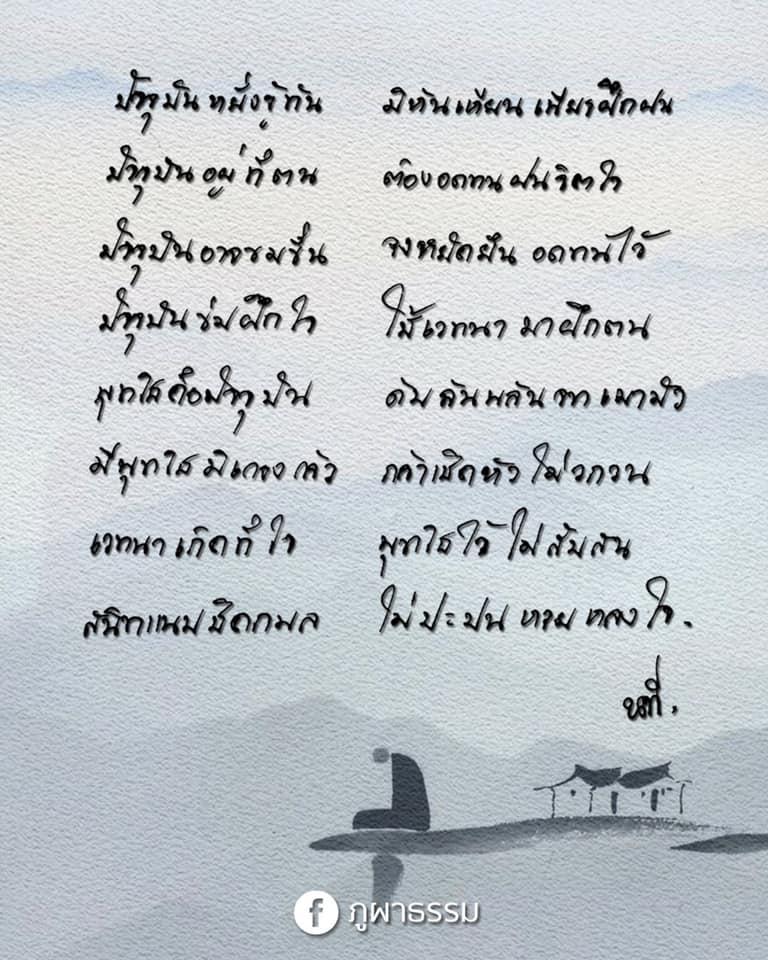 ปัจจุบันหยั่งรู้ทัน มิหันเหียนเพียรฝึกฝน
ปัจจุบันอยู่ที่ตน ต้องอดทนฝนจิตใจ
ปัจจุบันอาจขมขื่น จงหยัดยืนอดทนไว้
ปัจจุบันข่มฝึกใจ ใช้เวทนามาฝึกตน
พุทโธคือปัจจุบัน ดับลันพลัน
มีพุทโธมิเกรงกลัว กล้าเชิดหัวไม่วกวน
เวทนาเกิดที่ใจ พุทโธไว้ไม่สับสน
สนิทแนบชิดกมล ไม่ปะปนหายหลงใจ.
นที.
ภูผาธรรม